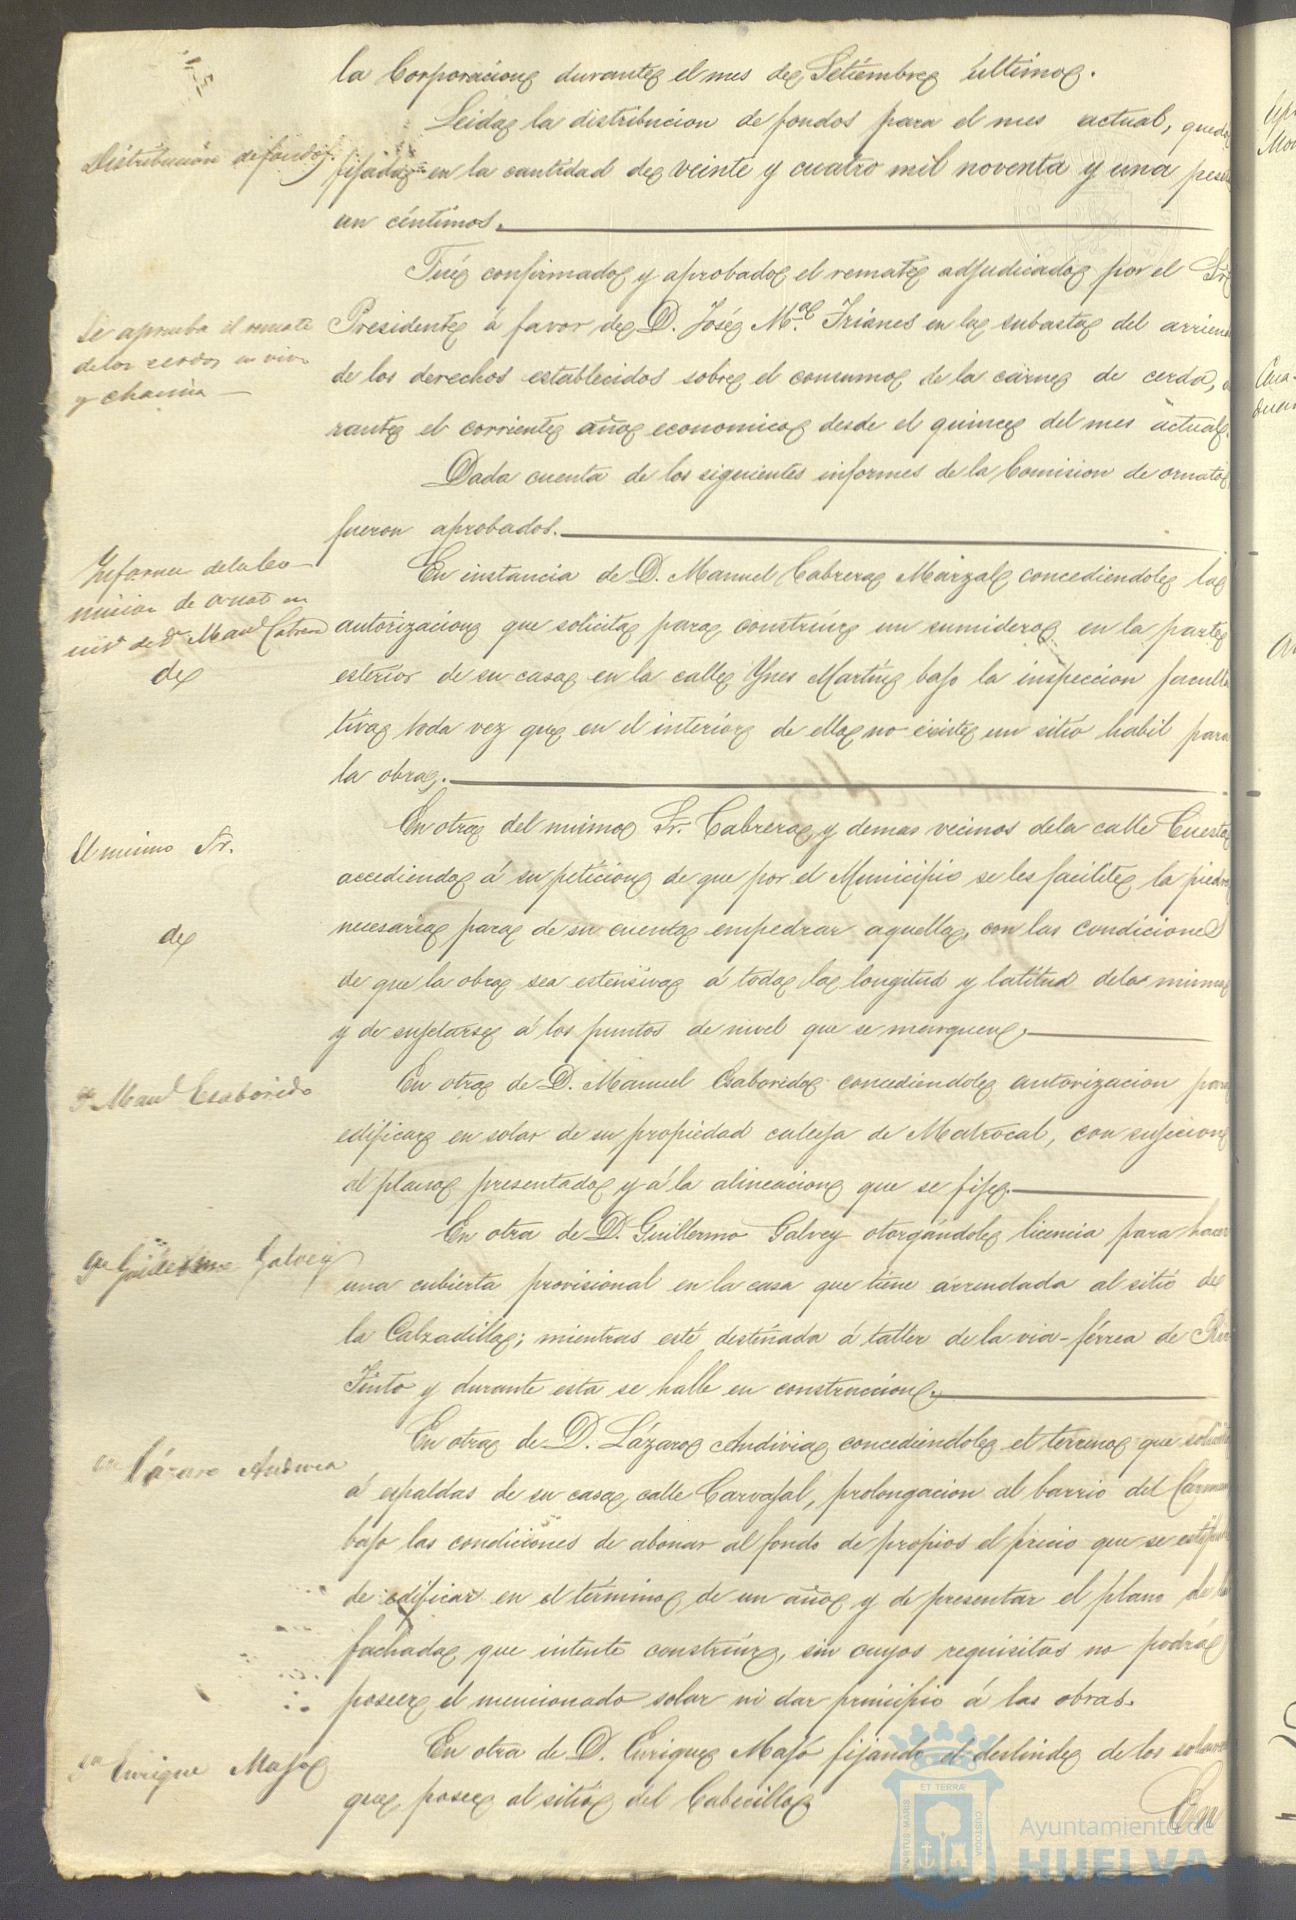 la Corporacion durante el mes de Setiembre último.
Leida la distribucion de fondos para el mes actual, quedó
Distribucion de fondos.
fijada en la cantidad de veinte y cuatro mil noventa y una pese
un céntimos.
Fué confirmado y aprobado el remate adjudicado por el Sr
Se aprueba el remate
de los cerdos en vivo
y chacina
Presidente á favor de D. José M.ª Trianes en la subasta del arrien
de los derechos establecidos sobre el consumo de la carne de cerda,
rante el corriente año economico desde el quince del mes actual.
Dada cuenta de los siguientes informes de la Comision de ornato
fueron aprobados.
Informe de la Co
mision de ornato en
de D. Man.l Cabrera
de
En instancia de D. Manuel Cabrera Marzal, concediendole la
autorizacion que solicita para construir un sumidero en la parte
esterior de su casa en la calle Ynes Martin bajo la inspeccion faculta
tiva toda vez que en el interior de ella no existe un sitio habil para
la obra.
El mismo Sr.
de
En otra del mismo Sr. Cabrera y demas vecinos de la calle Cuesta
accediendo á su peticion de que por el Municipio se les facilite la piedra
necesaria para de su cuenta empedrar aquella, con las condiciones
de que la obra sea estensiva á toda la longitud y latitud de la misma
y de sujetarse á los puntos de nivel que se marquen.
D. Man.l Gaborido
En otra de D. Manuel Gaborido concediendole autorizacion para
edificar en solar de su propiedad calleja de Matrocal, con sujecion
al plano presentado y á la alineacion que se fije.
Guillermo Galvey
En otra de D. Guillermo Galvey otorgándole licencia para hacer
una cubierta provisional en la casa que tiene arrendada al sitio de
la Calzadilla; mientras esté destinada á taller de la via-férrea de Rio
Tinto y durante esta se halle en construccion.
Lázaro Andivia
En otra de D. Lázaro Andivia concediendole el terreno que solicita
á espaldas de su casa calle Carvajal, prolongacion al barrio del Cármen
bajo las condiciones de abonar al fondo de propios el precio que se estipule
de edificar en el término de un año y de presentar el plano de la
fachada que intente construir, sin cuyos requisitos no podrá
poseer el mencionado solar ni dar principio á las obras.
Enrique Majo
En otra de D. Enrique Majó fijando el deslinde de los solares
que posee al sitio del Cabecillo
En
ET TERRÆ
PORTUS MARIS
CUSTODIA
Ayuntamiento de
HUELVA